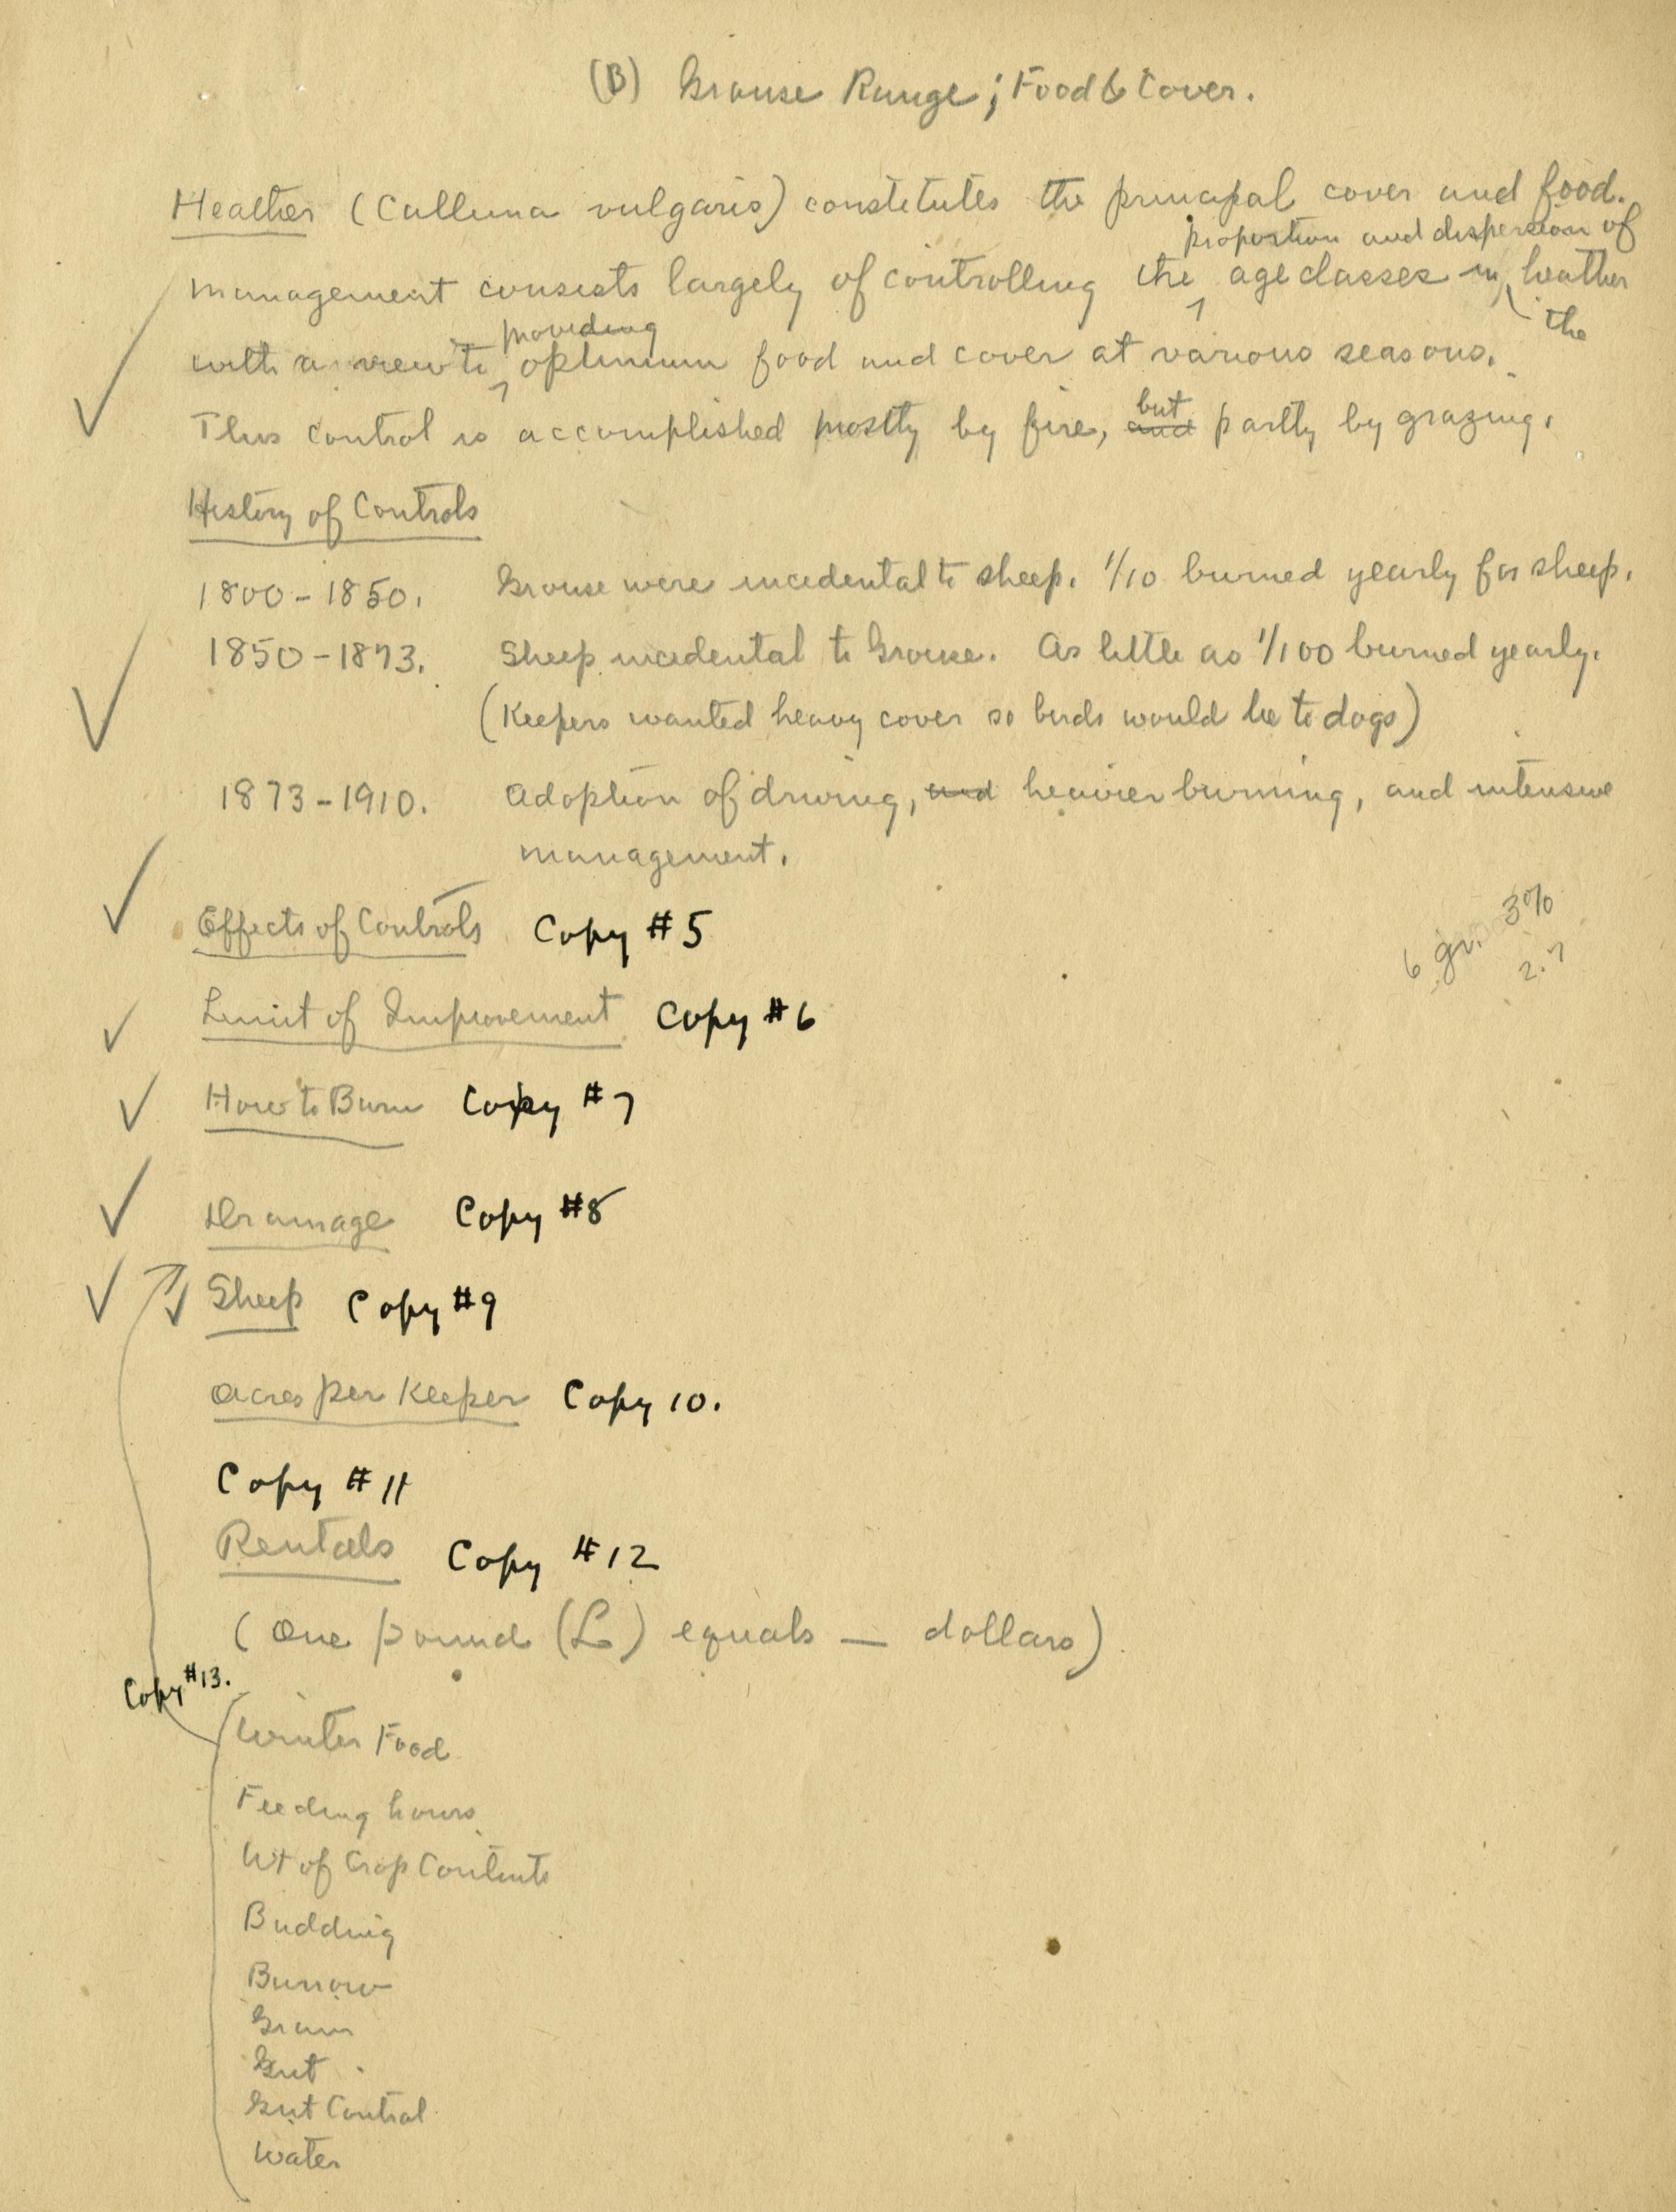 (B) Grouse Range; Food & Cover.
Heather (Calluna vulgaris) constitutes the principal cover and food.
proportion and dispersion of
management consists largely of controlling the age classes in heather
the
providing
with a view to optimum food and cover at various seasons.
but
This control is accomplished mostly by fire, and partly by grazing.
History of Controls
1800-1850. Grouse were incidental to sheep. 1/10 burned yearly for sheep.
1850-1873. Sheep incidental to Grouse. As little as 1/100 burned yearly.
(Keepers wanted heavy cover so birds would lie to dogs)
1873-1910. Adoption of driving, and heavier burning, and intensive
management.
Effects of Controls Copy #5
6 gr. 3%
2.7
Limit of Improvement Copy #6
How to Burn Copy #7
Drainage Copy #8
Sheep Copy #9
Acres per Keeper Copy 10.
Copy #11
Rentals Copy #12
(One pound (£) equals — dollars)
Copy #13.
Winter Food
Feeding hours
Wt of Crop Contents
Budding
Burrow
Grain
Grit
Grit Control
Water